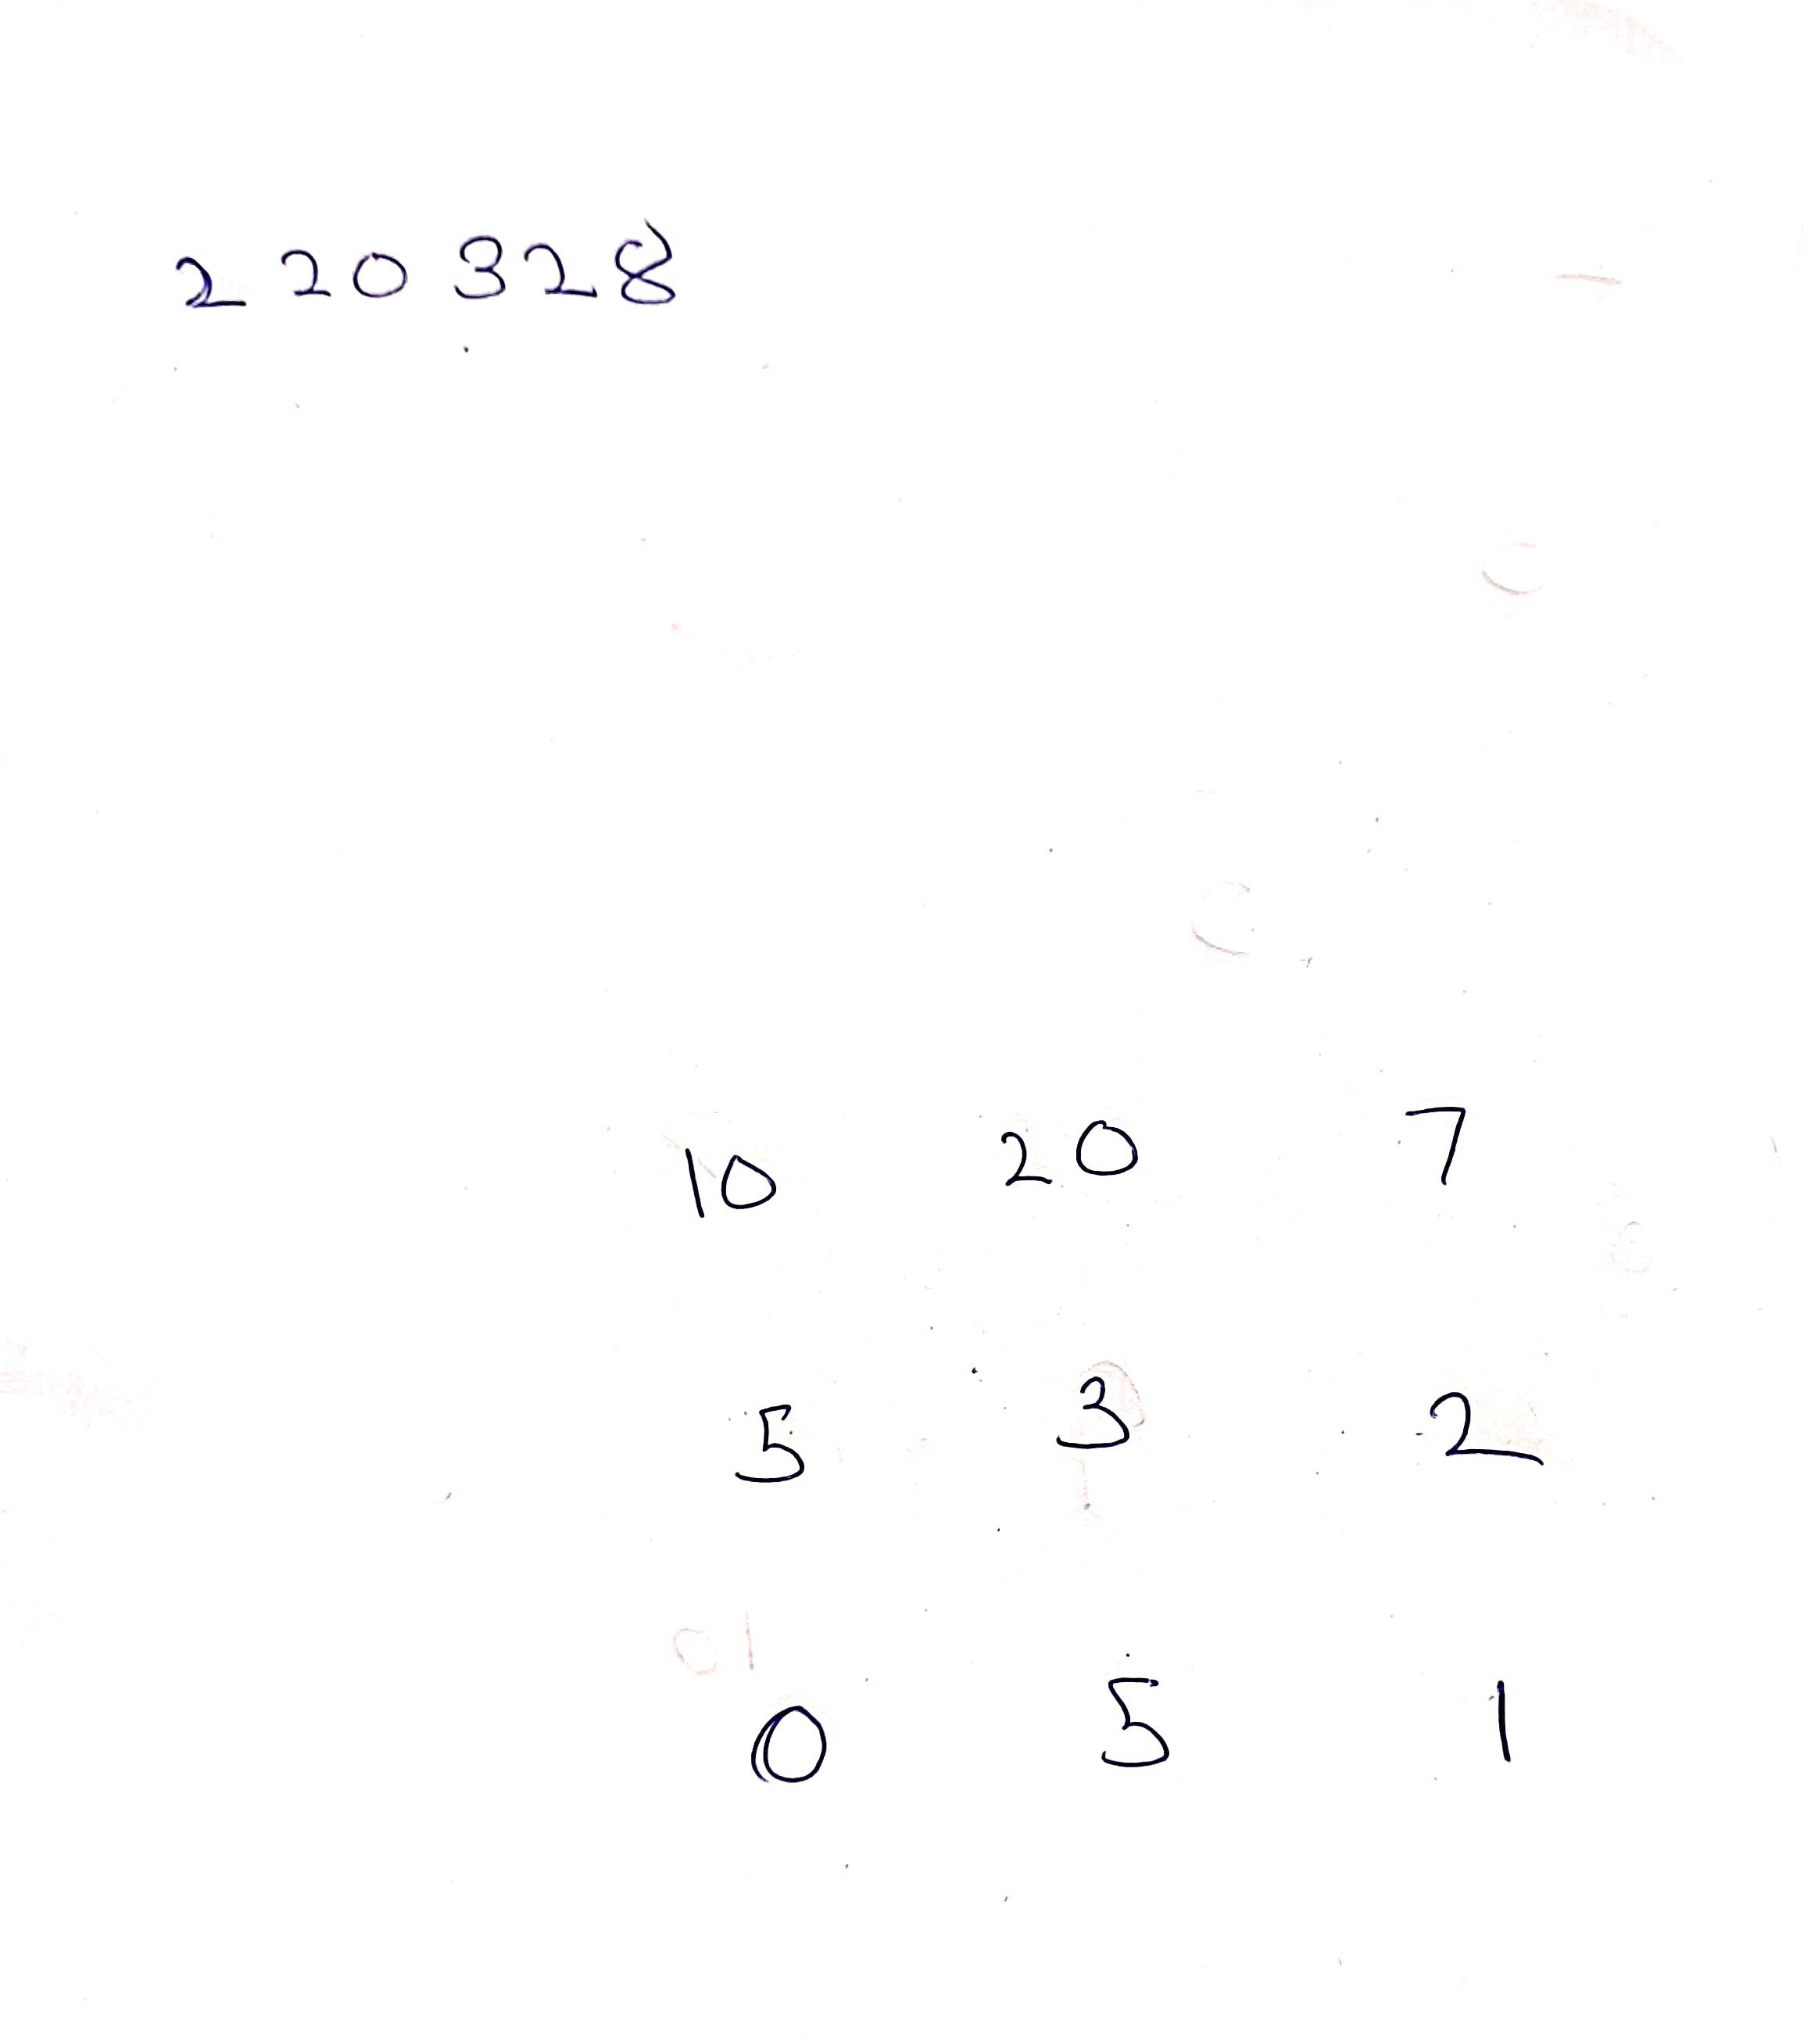 220328
10 20 7
5 3 2
0 5 1